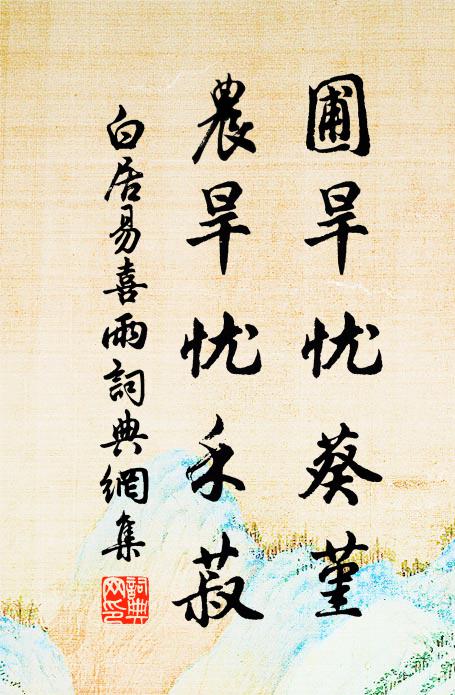 圃旱忧葵堇
農旱忧禾菽
白居易喜雨詞典網集
詞典